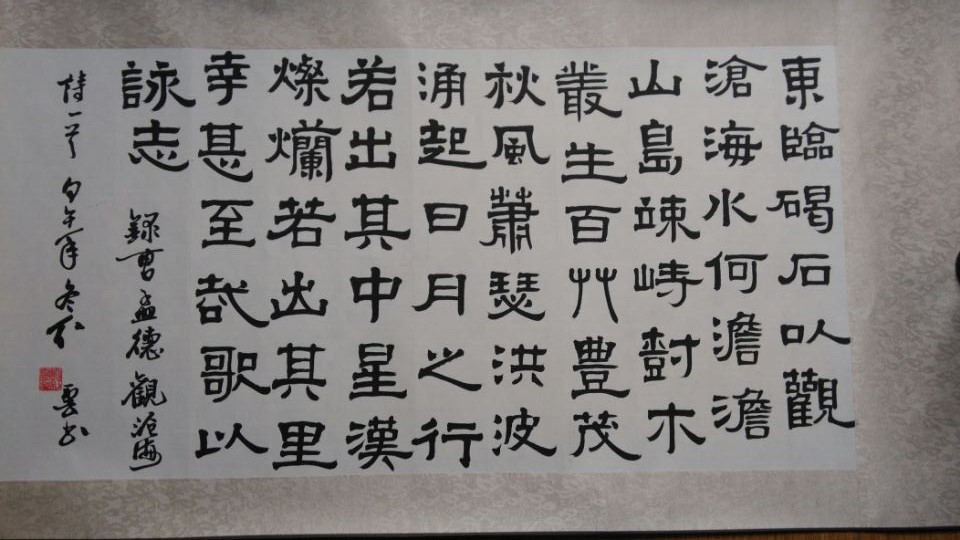 東臨碣石以觀
滄海水何澹澹
山島竦峙樹木
叢生百艸豊茂
秋風蕭瑟洪波
涌起日月之行
若出其中星漢
燦爛若出其里
幸甚至哉歌以
詠志
錄曹孟德觀滄海
詩一首 甲午年冬